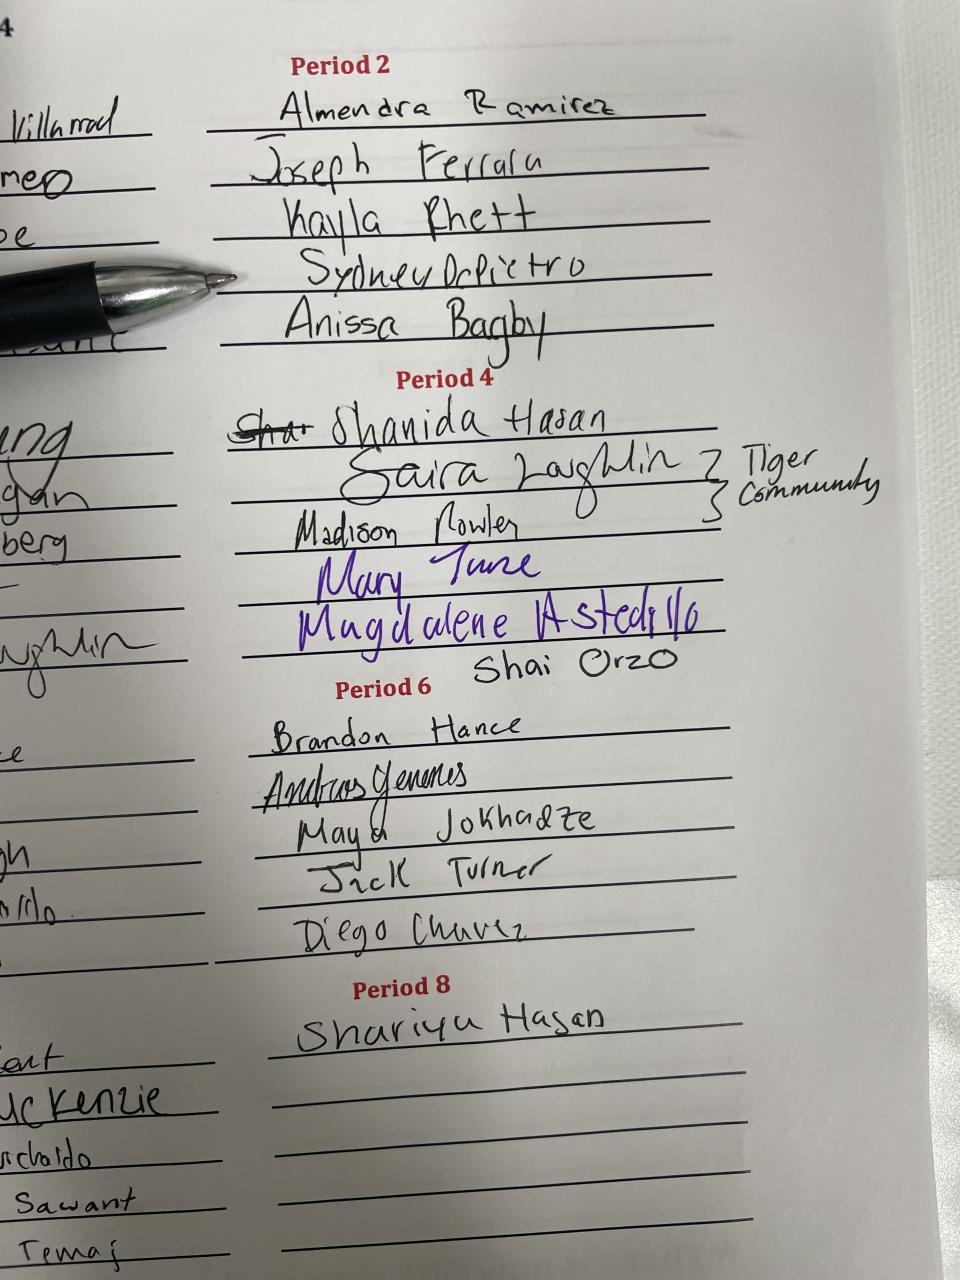 4
Villarreal
meo
oe
Period 2
Almendra Ramirez
Joseph Ferrara
Kayla Rhett
Sydney DePietro
Anissa Bagby
ung
gan
berg
ughlin
Period 4
Shanida Hasan
Saira Laughlin
Madison Rowley
Tiger
Community
Mary Tunze
Magdalene Astedillo
Shai Orzo
ce
gh
Period 6
Brandon Hance
Andreas
Maya Jokhadze
Jack Turner
Diego Chavez
McKenzie
Sawant
Temaj
Period 8
Shariya Hasan